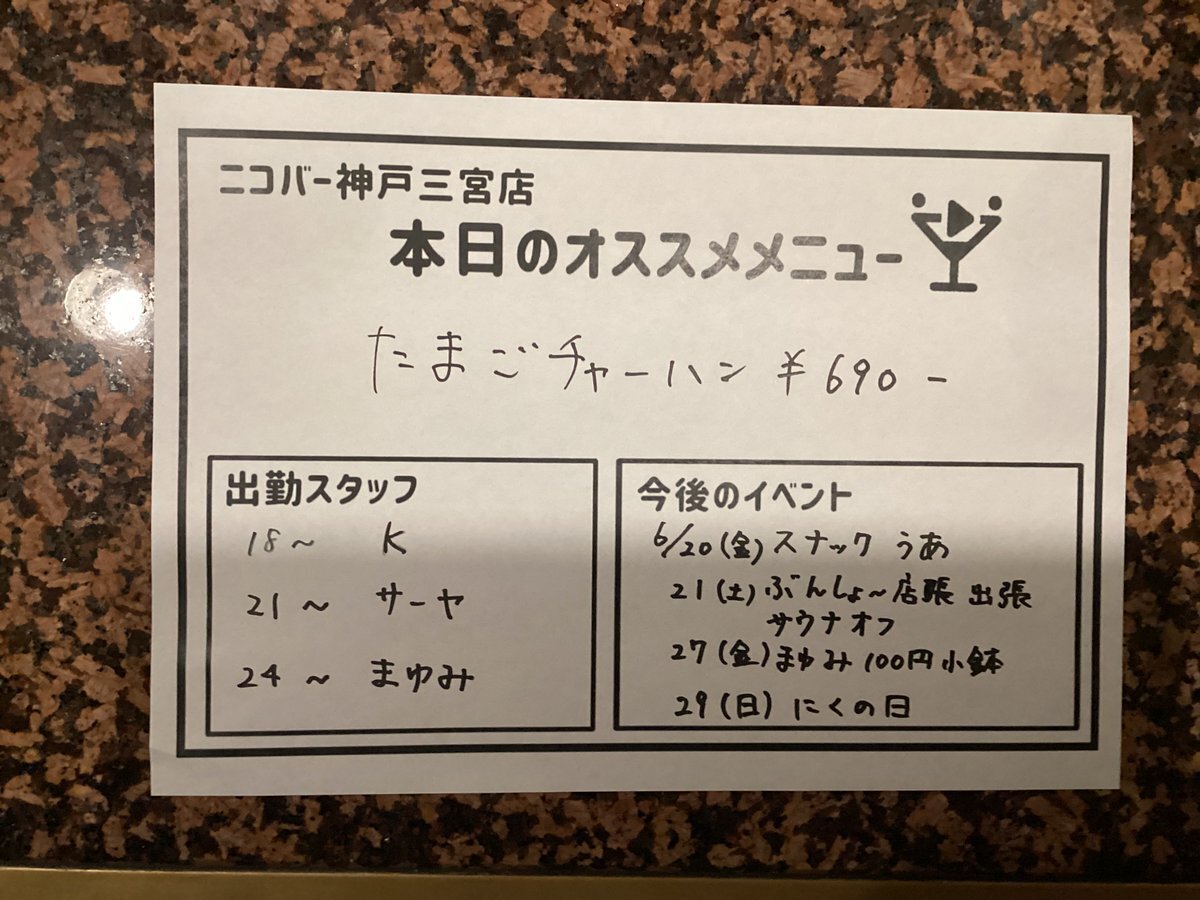 ニコバー神戸三宮店
本日のオススメメニュー
たまごチャーハン ¥690-
出勤スタッフ
18~ K
21~ サーヤ
24~ まゆみ
今後のイベント
6/20(金)スナック うあ
21(土)ぶんしょ~店張 出張
サウナオフ
27(金)まゆみ 100円小鉢
29(日)にくの日